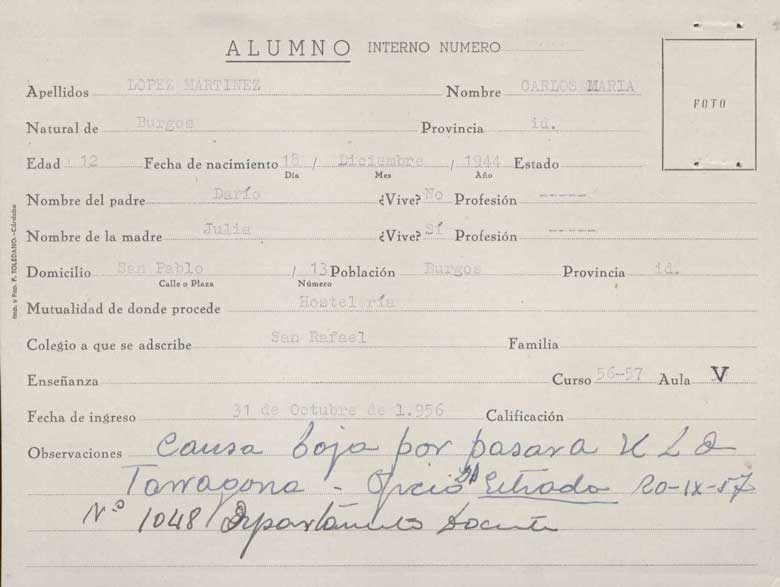 ALUMNO INTERNO NUMERO
FOTO
Apellidos LOPEZ MARTINEZ Nombre CARLOS MARIA
Natural de Burgos Provincia id.
Edad 12 Fecha de nacimiento 18 / Diciembre / 1944 Estado
Día Mes Año
Nombre del padre Darío ¿Vive? No Profesión -----
Nombre de la madre Julia ¿Vive? Sí Profesión -----
Domicilio San Pablo / 13 Población Burgos Provincia id.
Calle o Plaza Número
Mutualidad de donde procede Hostelería
Colegio a que se adscribe San Rafael Familia
Enseñanza Curso 56-57 Aula V
Fecha de ingreso 31 de Octubre de 1.956 Calificación
Observaciones Causa baja por pasar a U L D
Tarragona - Oficio Entrada 20-IX-57
Nº 1048 Departamento Docente
Imp. y Pap. F. TOLEDANO.-Córdoba